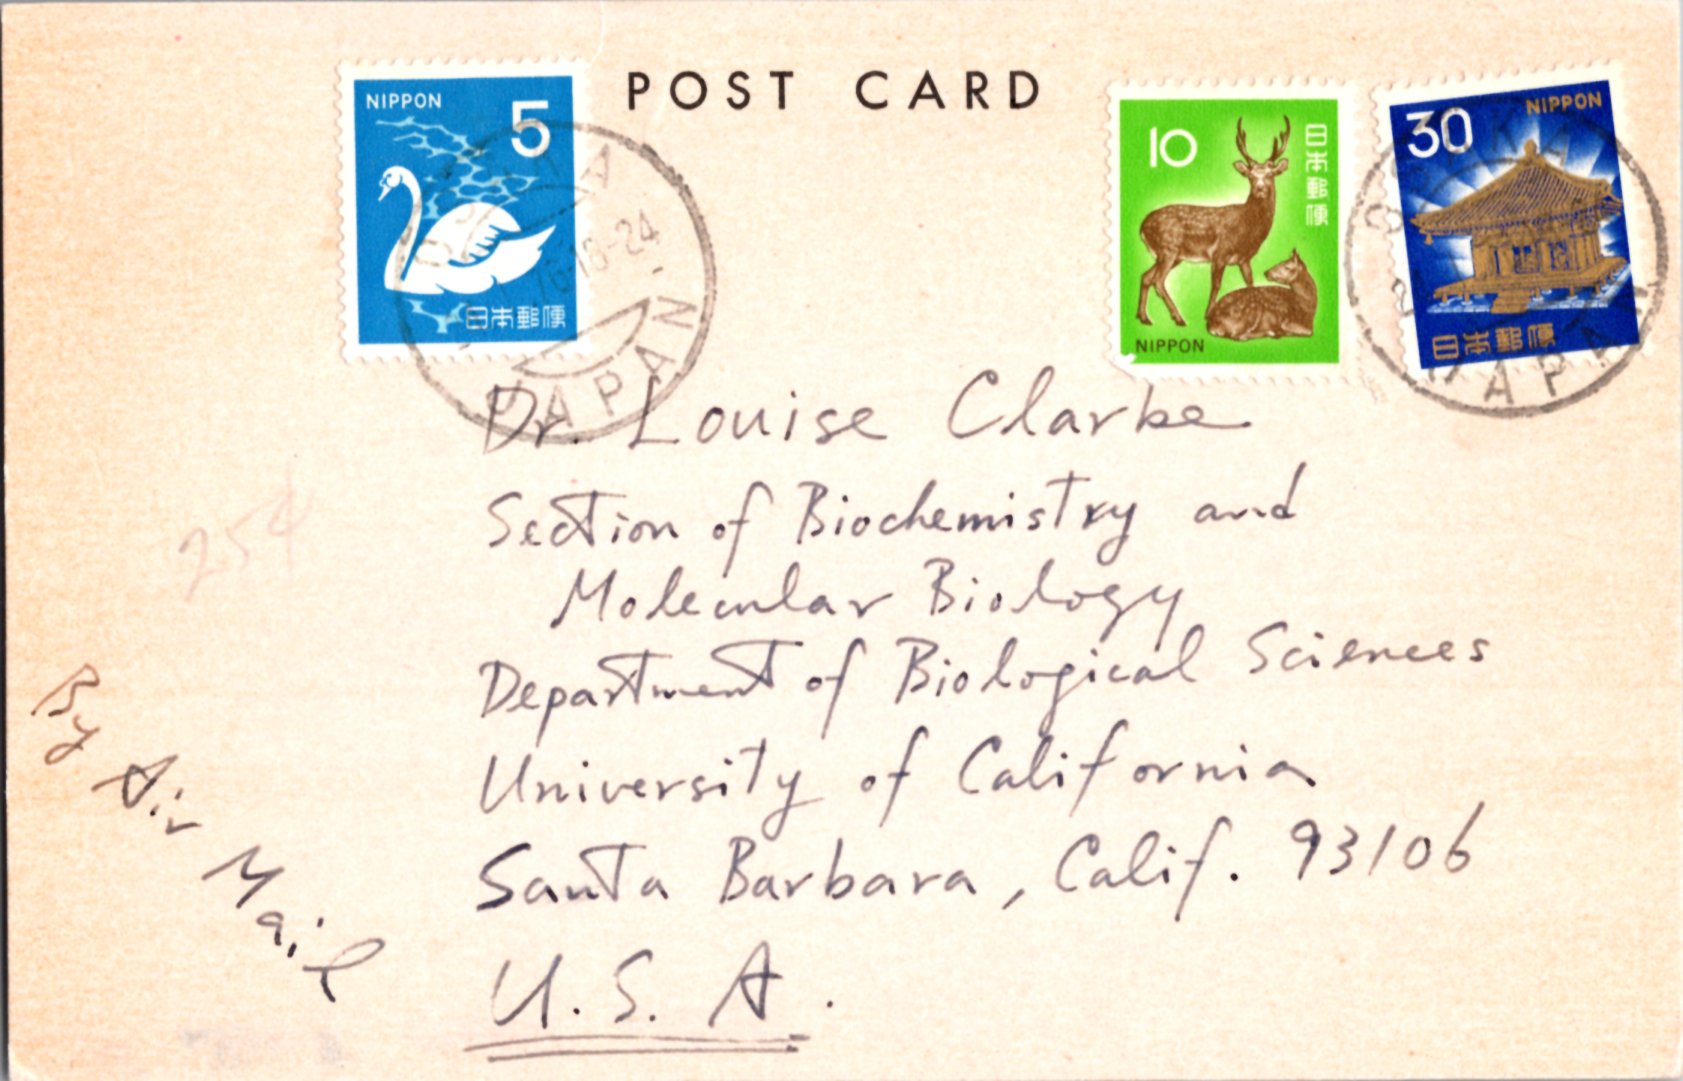 POST CARD
NIPPON
5
日本郵便
10
日本郵便
NIPPON
30
NIPPON
日本郵便
18-24
JAPAN
JAPAN
25¢
Dr. Louise Clarke
Section of Biochemistry and
Molecular Biology
Department of Biological Sciences
University of California
Santa Barbara, Calif. 93106
U.S.A.
By Air Mail